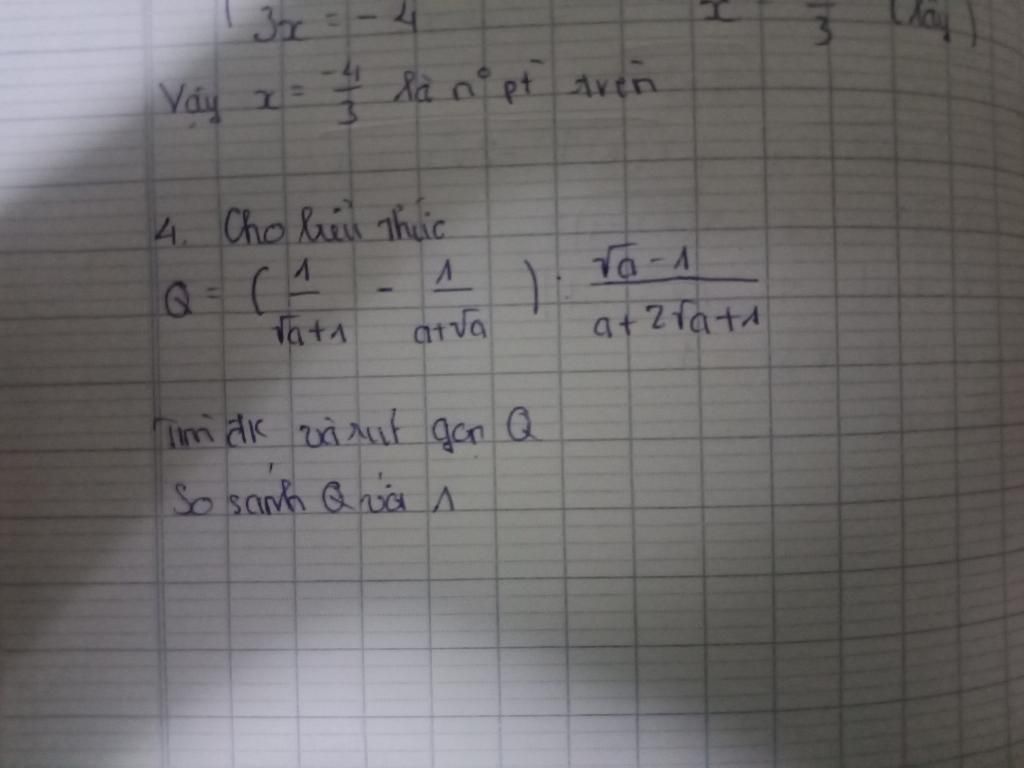 3x = -4 x 3 (lấy)
Vậy x = -4/3 là n° pt trên
4. Cho biểu thức
Q = ( 1/(√a+1) - 1/(a+√a) ) : (√a - 1)/(a+2√a+1)
Tìm đk và rút gọn Q
So sánh Q với 1